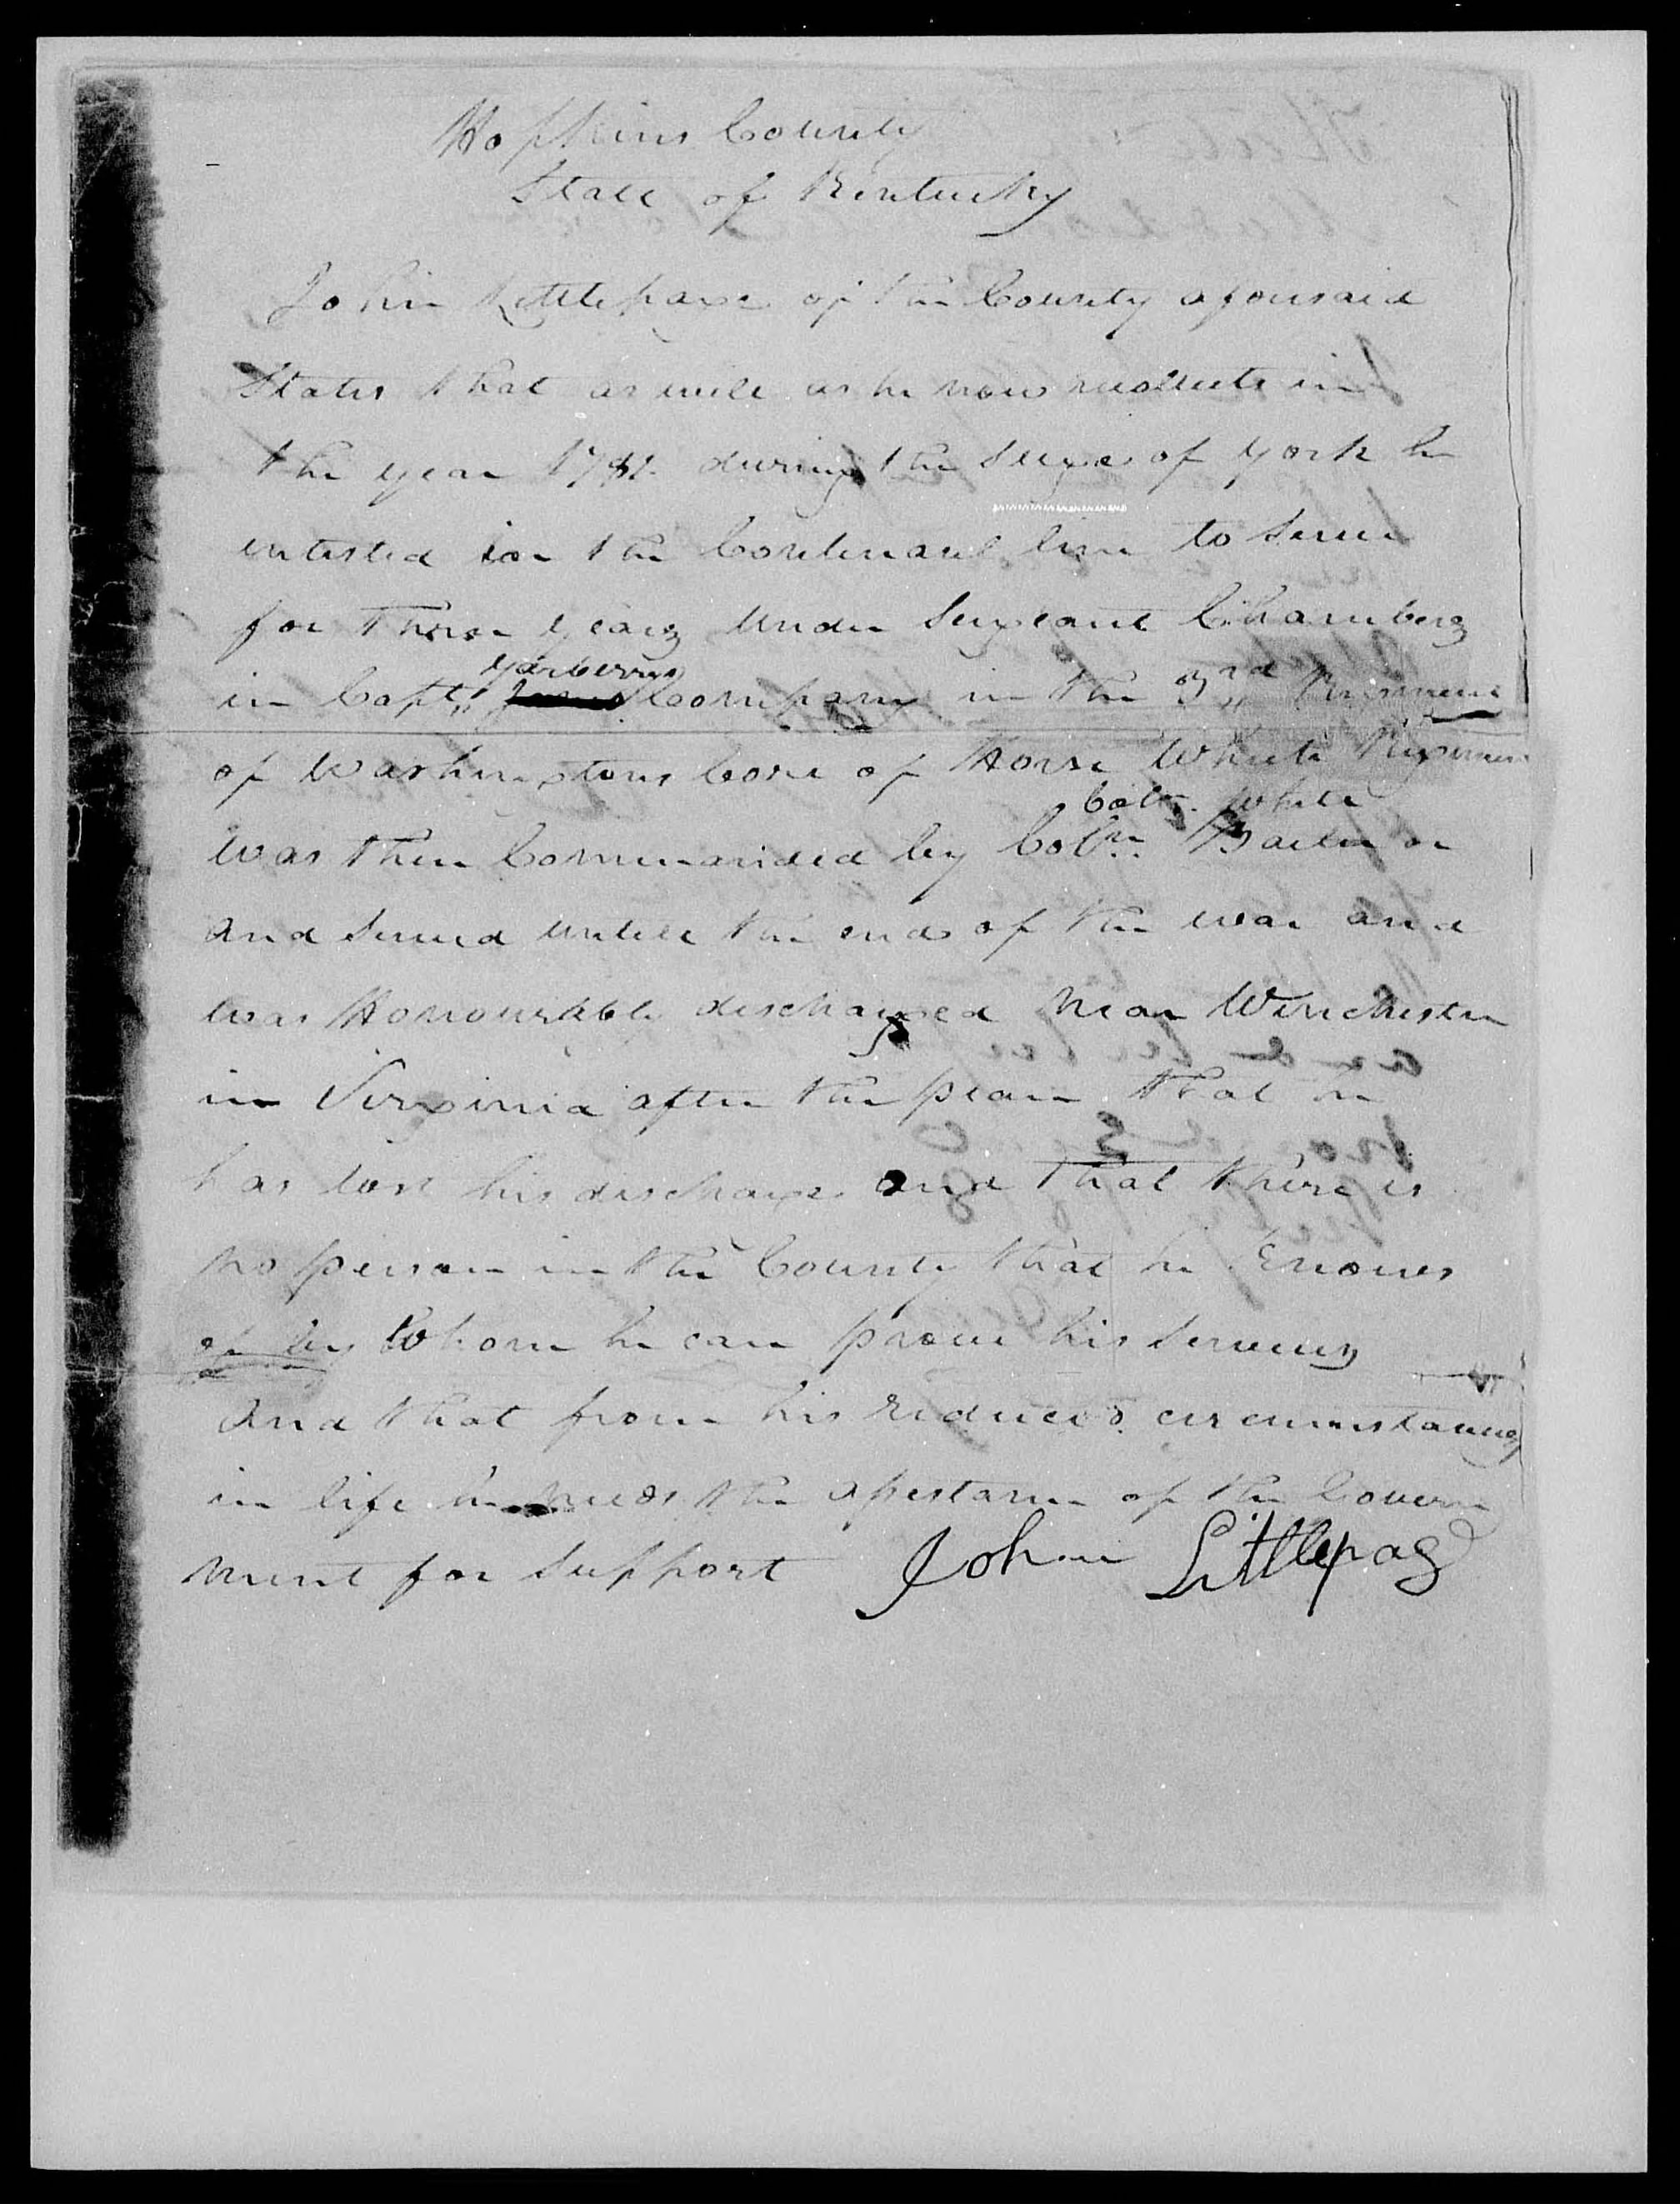 Hopkins County
State of Kentucky
John Littlepage of the County aforesaid
States that as well as he now recollects in
the year 1781 during the Seige of York he
entisted in the Contenanl line to Serve
for three years under Sergeant Chambers
in Capt. Yarberrys Company in the 3rd Regiment
of Washingtons Core of Horse Which Regiment
Coln. White
was then Commanded by Coln. Bailer or
and Served untill the end of the war and
was Honourably discharged near Winchester
in Virginia after the peace that he
has lost his discharge and that there is
no person in the County that he Knowes
of by Whom he can prove his Services
and that from his reduced circumstances
in life he needs the assistance of the Govern
ment for Support John Littlepag